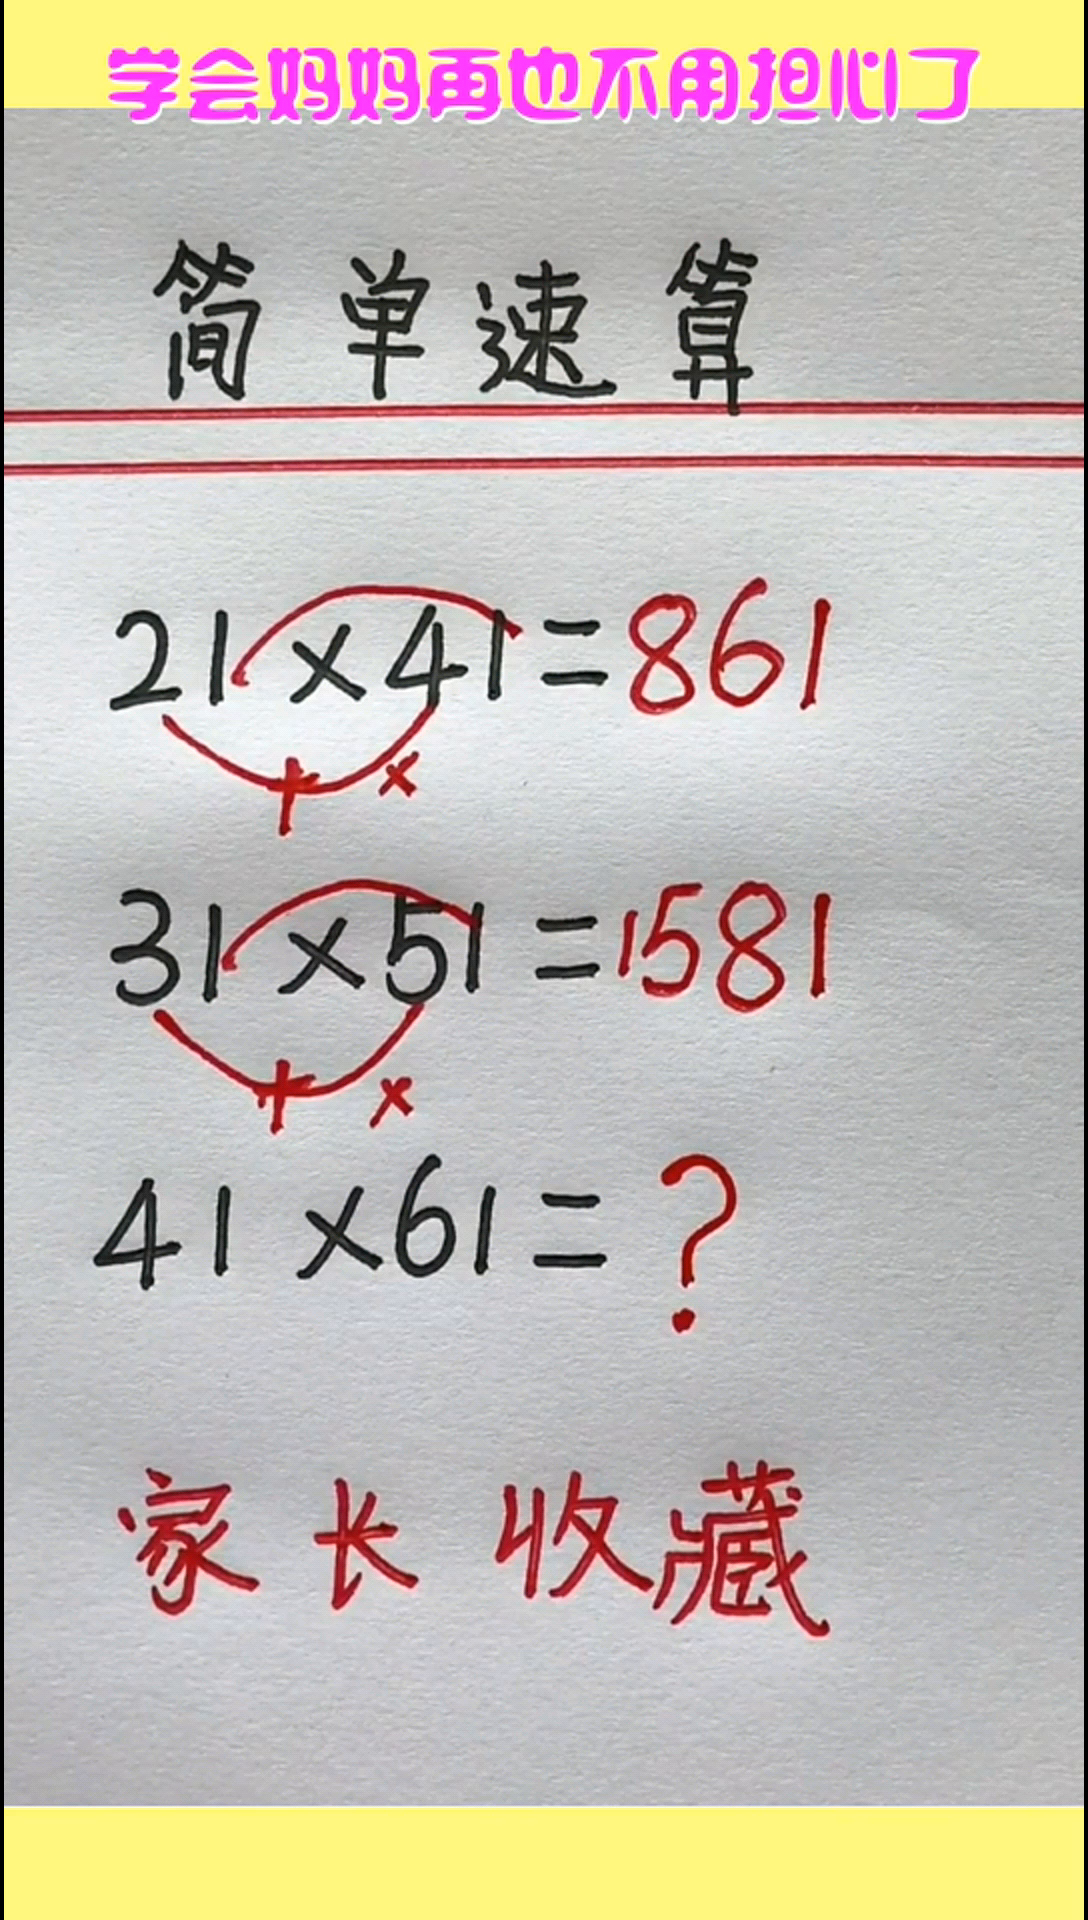 学会妈妈再也不用担心了
简单速算
21×41=861
+ ×
31×51=1581
+ ×
41×61=?
家长收藏